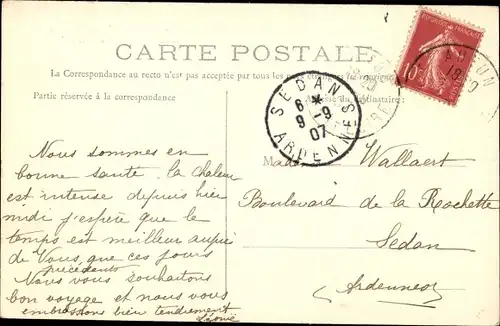 CARTE POSTALE
La Correspondance au recto n'est pas acceptée par tous les pays étrangers
Partie réservée à la correspondance
du Destinataire :
SEDAN
6 *
9 -9
07
ARDENNES
RÉPUBLIQUE FRANÇAISE
10
18
Nous sommes en
bonne santé. la Chaleur
est intense depuis hier
midi j'espère que le
temps est meilleur auprès
de Vous, que ces jours
précédents
Nous vous souhaitons
bon voyage et nous vous
embrassons bien tendrement
Léonie
Wallaert
Boulevard de la Rochette
Sedan
(Ardennes)